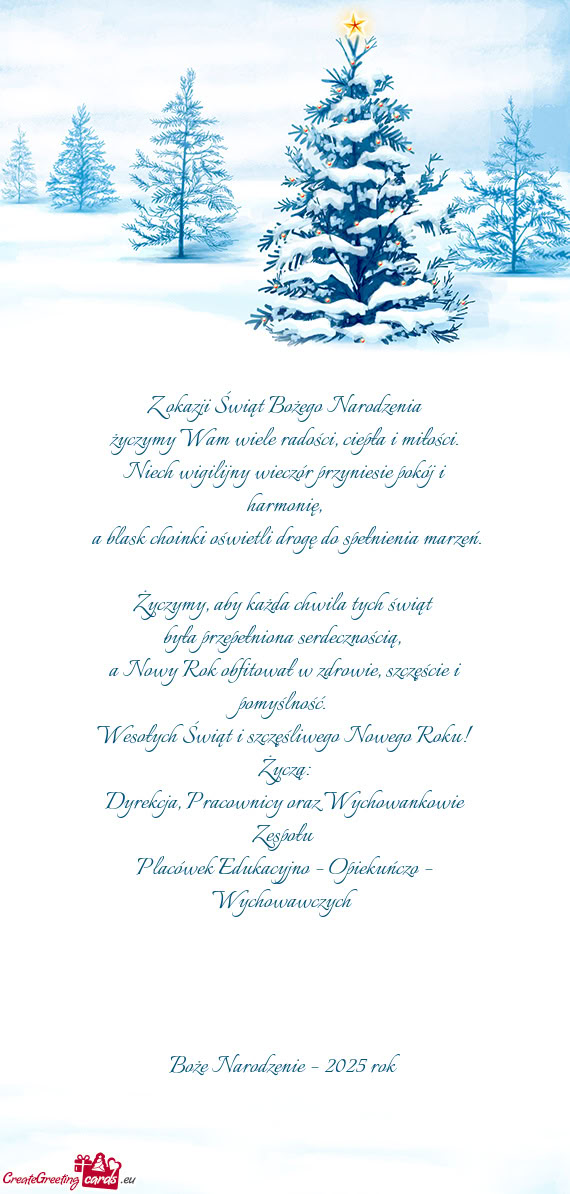 Z okazji Świąt Bożego Narodzenia
życzymy Wam wiele radości, ciepła i miłości.
Niech wigilijny wieczór przyniesie pokój i
harmonię,
a blask choinki oświetli drogę do spełnienia marzeń.
Życzymy, aby każda chwila tych świąt
była przepełniona serdecznością,
a Nowy Rok obfitował w zdrowie, szczęście i
pomyślność.
Wesołych Świąt i szczęśliwego Nowego Roku!
Życzą:
Dyrekcja, Pracownicy oraz Wychowankowie
Zespołu
Placówek Edukacyjno - Opiekuńczo -
Wychowawczych
Boże Narodzenie - 2025 rok
CreateGreeting cards .eu